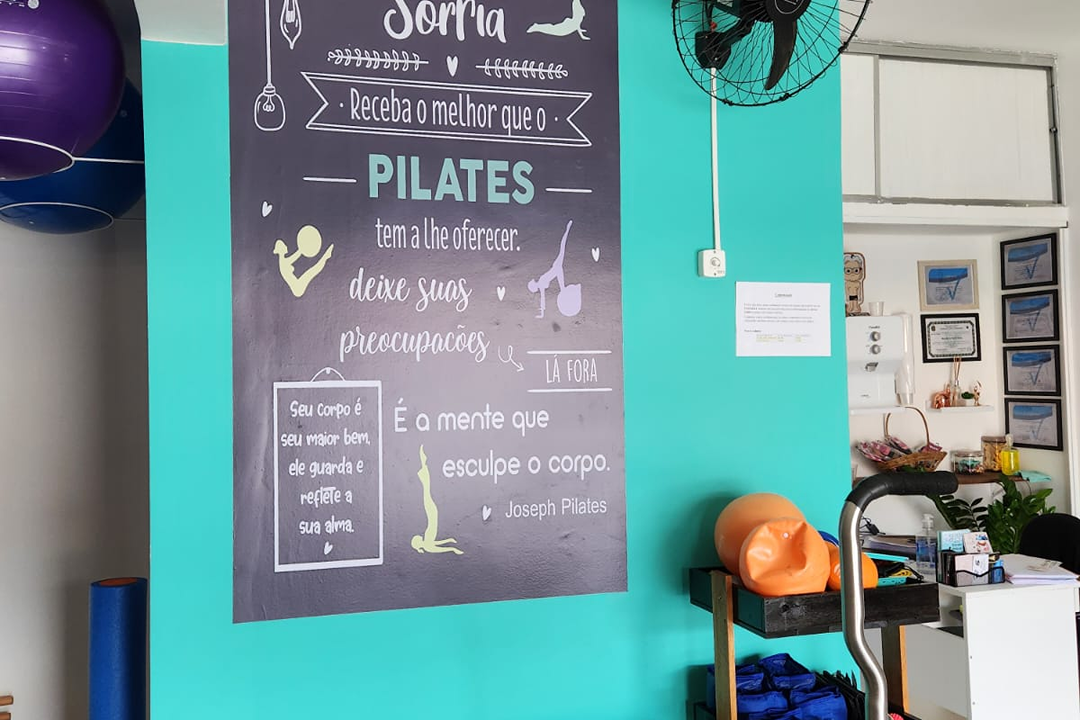 Sorria
Receba o melhor que o
PILATES
tem a lhe oferecer.
deixe suas
preocupacões
LÁ FORA
Seu corpo é
seu maior bem,
ele guarda e
reflete a
sua alma.
É a mente que
esculpe o corpo.
Joseph Pilates